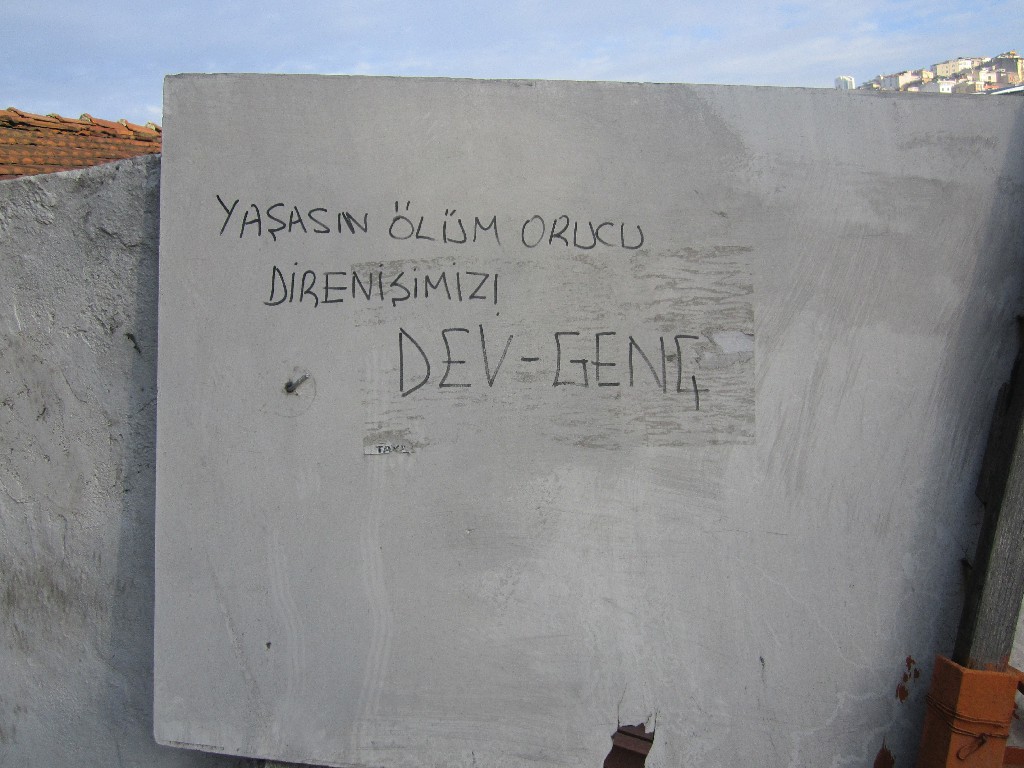 YAŞASIN ÖLÜM ORUCU
DİRENİŞİMİZ!
DEV-GENÇ